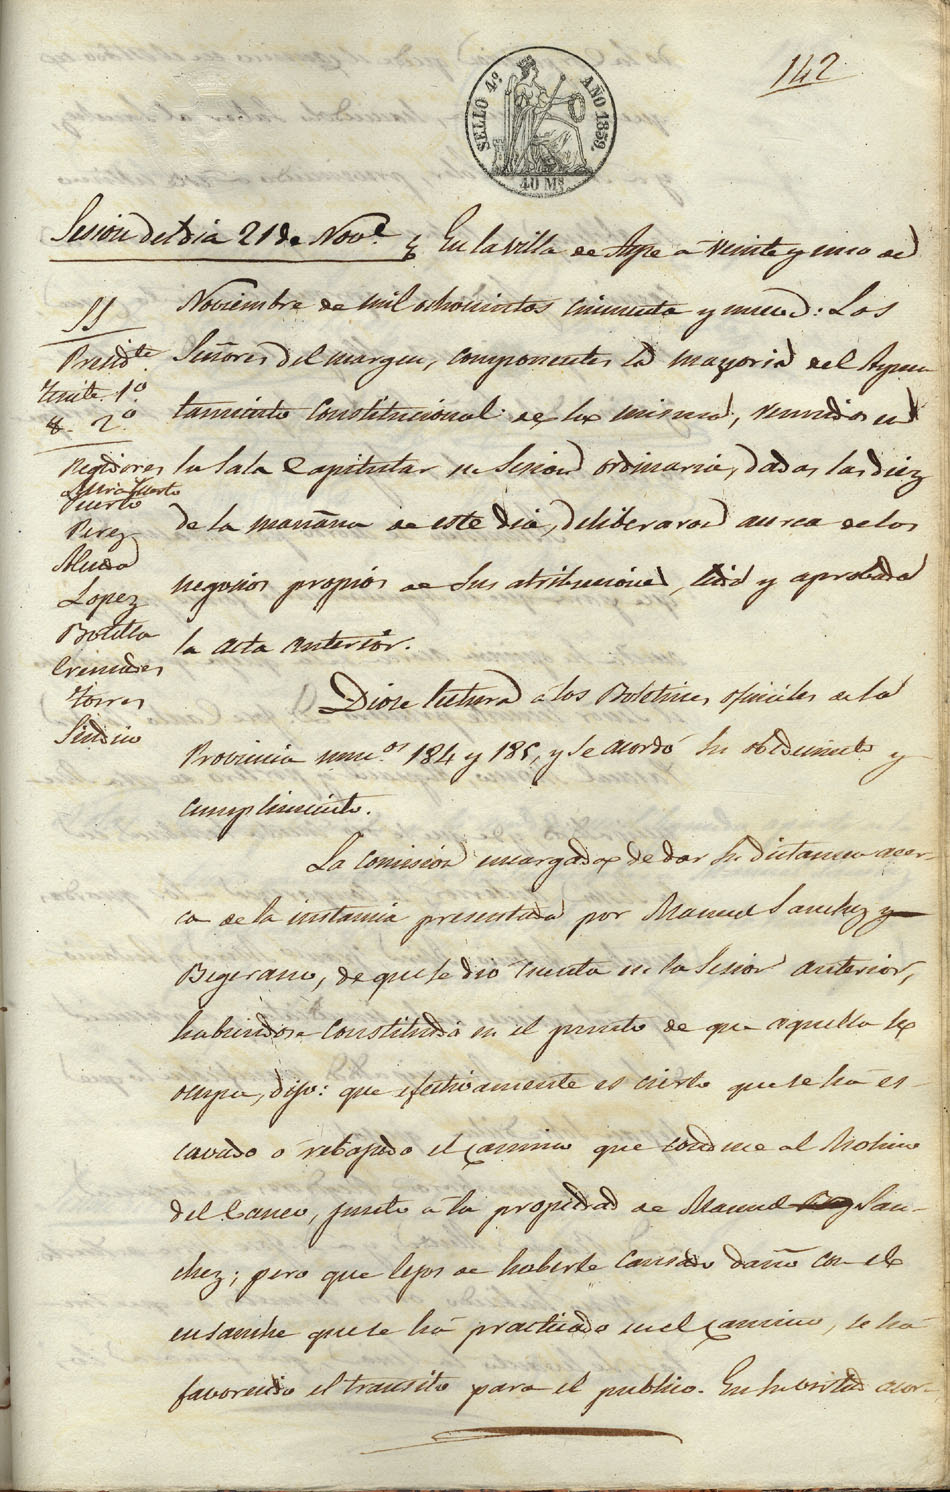 142
SELLO 4º AÑO 1859.
40 Ms
Sesion del dia 21 de Nove. En la villa de Aspe a veinte y uno de
Noviembre de mil ochocientos cincuenta y nueve: Los
Señores del margen, componentes la mayoria del Ayun
tamiento Constitucional de la misma, reunidos en
la Sala Capitular en Sesion ordinaria, dadas las diez
de la mañana de este dia, deliberaron acerca de los
negocios propios de sus atribuciones, leida y aprobada
la acta anterior.
SS
Presidte.
Tente. 1º
" 2º
Regidores
Puerto
Perez
Alucer
Lopez
Botella
Cremades
Torres
Sindico
Diose lectura á los Boletines oficiales de la
Provincia numos. 184 y 185, y se acordó su obedecimiento y
cumplimiento.
La comision encargada de dar su dictamen acer-
ca de la instancia presentada por Manuel Sanchez y
Begerano, de que se dió cuenta en la Sesion anterior,
habiendose constituido en el punto de que aquella se
ocupa, dijo: que efectivamente es cierto que se ha es-
cavado ó rebajado el camino que conduce al Molino
del Banco, junto á la propiedad de Manuel San-
chez; pero que lejos de haberle causado daño con el
ensanche que se ha practicado en el camino, se ha
favorecido el transito para el publico. En su virtud acor-